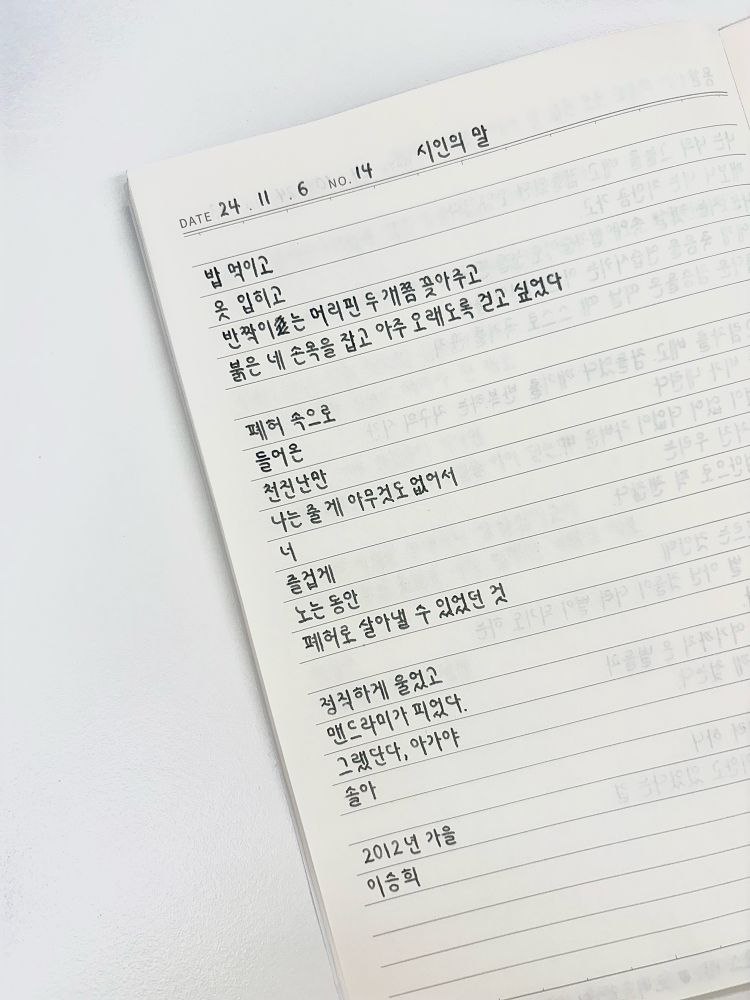 시인의 말
DATE 24 . 11 . 6 NO. 14
밥 먹이고
옷 입히고
반짝이는 머리핀 두 개쯤 꽂아주고
붉은 네 손목을 잡고 아주 오래도록 걷고 싶었다
폐허 속으로
들어온
천진난만
나는 줄 게 아무것도 없어서
너
즐겁게
노는 동안
폐허로 살아낼 수 있었던 것
정직하게 울었고
맨드라미가 피었다.
그랬단다, 아가야
솔아
2012년 가을
이승희